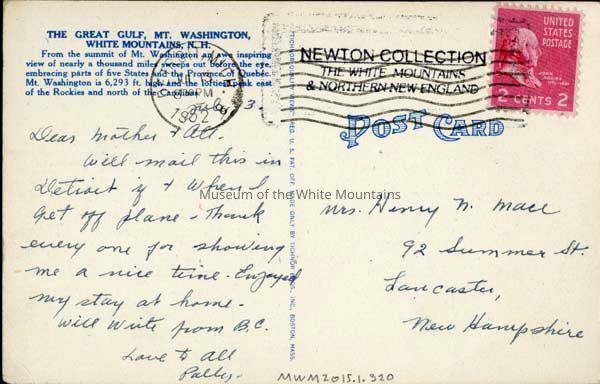 THE GREAT GULF, MT. WASHINGTON,
WHITE MOUNTAINS, N. H.
From the summit of Mt. Washington an awe inspiring
view of nearly a thousand miles sweeps out before the eye,
embracing parts of five States and the Province of Quebec.
Mt. Washington is 6,293 ft. high and the loftiest peak east
of the Rockies and north of the Carolinas.
PM
1952
July 3.
Dear Mother & All.
Will mail this in
Detroit if & when I
get off plane. Thank
every one for showing
me a nice time. Enjoyed
my stay at home.
Will write from B.C.
Love to All
Polly.
PUB. BY TICHNOR BROS., INC., BOSTON, MASS.
NEWTON COLLECTION
THE WHITE MOUNTAINS
& NORTHERN NEW ENGLAND
UNITED
STATES
POSTAGE
JOHN
ADAMS
2 CENTS 2
POST CARD
Museum of the White Mountains
Mrs. Henry N. Mace
92 Summer St.
Lancaster,
New Hampshire
MWM2015.1.320